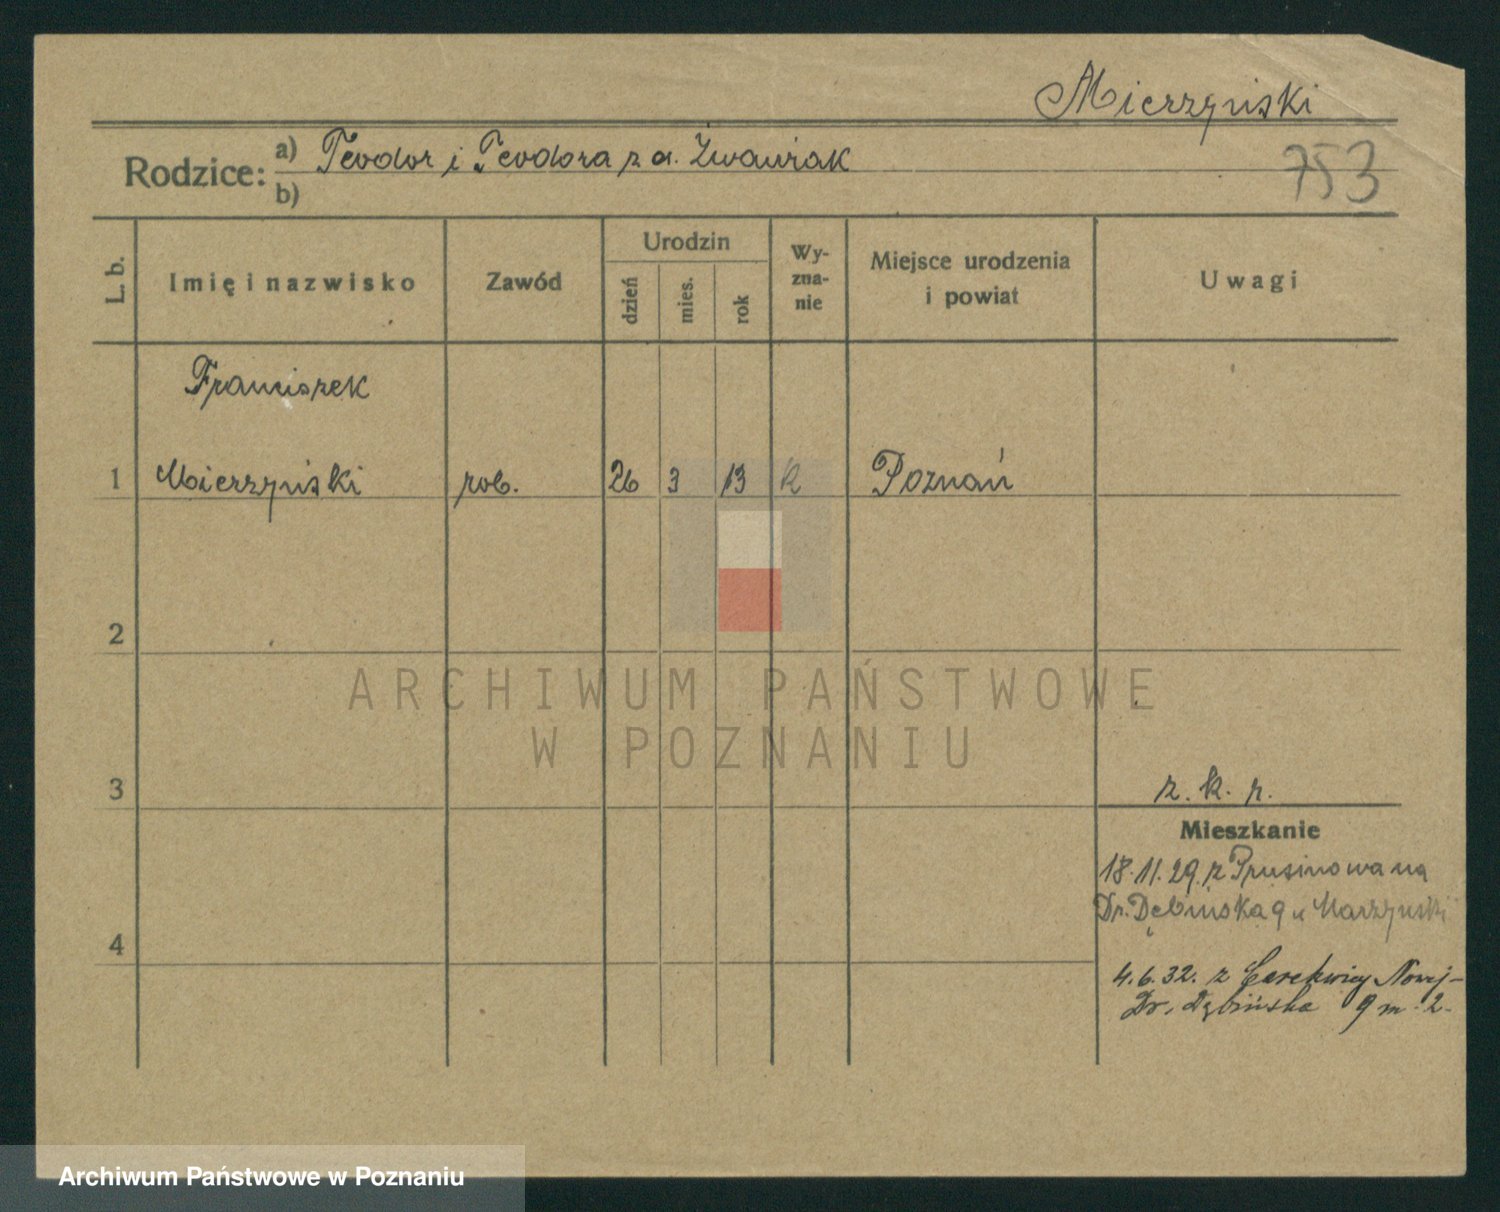 Mierzyński
Rodzice: a) Teodor i Teodora z d.
b)
753
L. b.
Imię i nazwisko
Zawód
Urodzin
dzień
mies.
rok
Wy-
zna-
nie
Miejsce urodzenia
i powiat
Uwagi
Franciszek
1 Mierzyński rob. 26 3 13 k Poznań
2
ARCHIWUM PAŃSTWOWE
W POZNANIU
3
z. k. p.
Mieszkanie
18.11.29. z Prusinowa na
Dr. Dębińska 9 u Marzyński
4
4.6.32. z Cerekwicy Nowej-
Dr. Dębińska 9 m. 2.
Archiwum Państwowe w Poznaniu